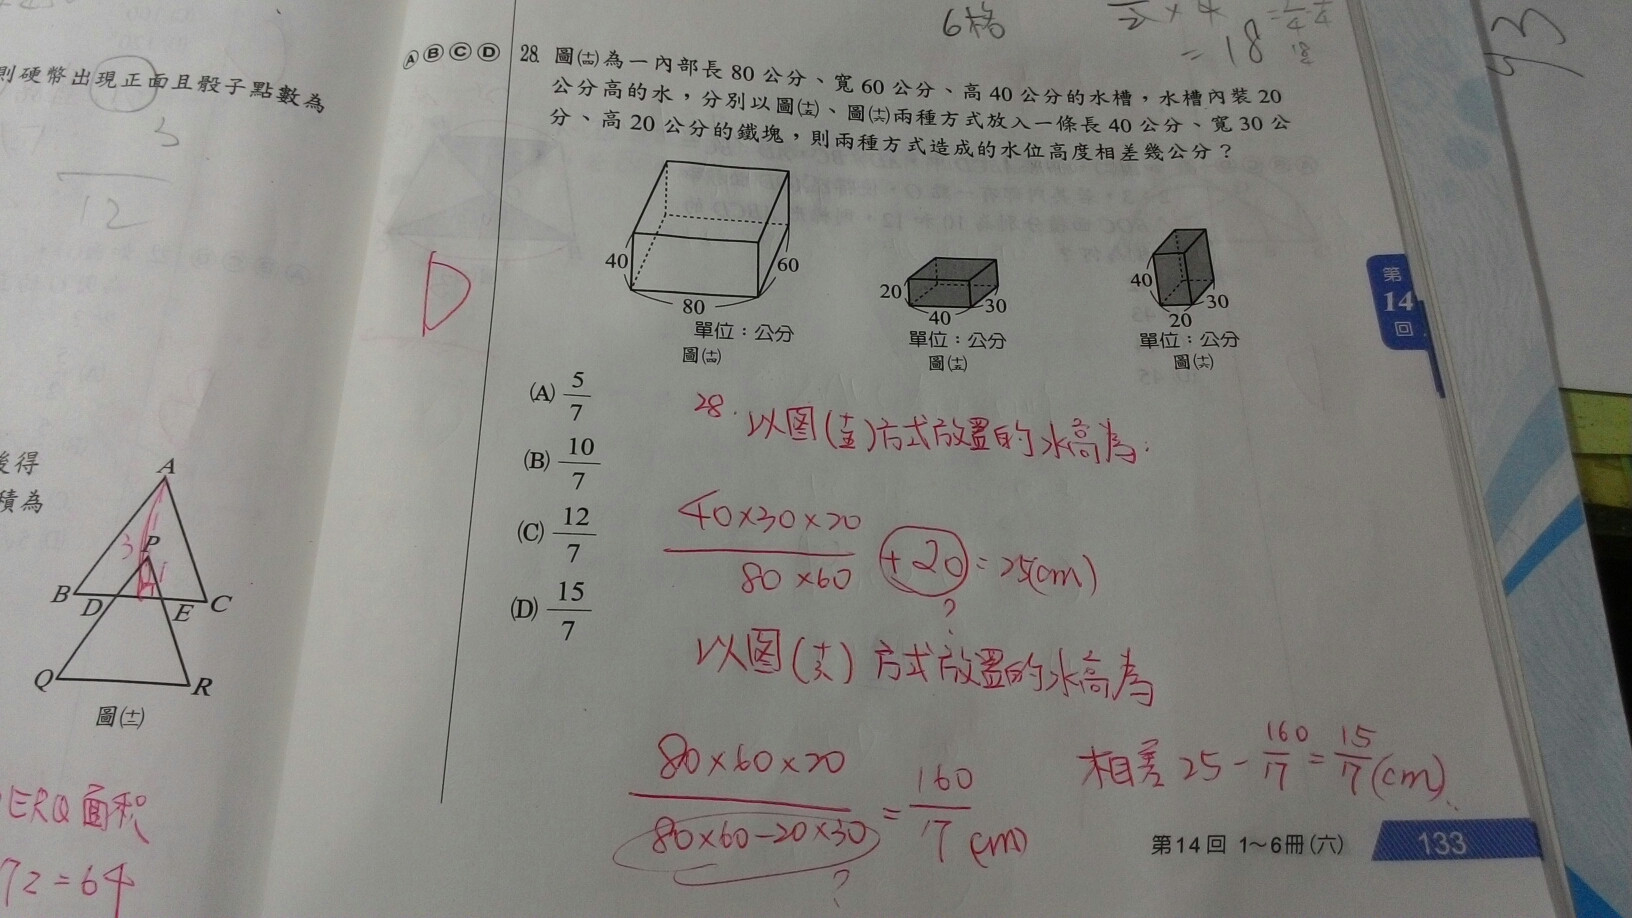 6格
= 18
則硬幣出現正面且骰子點數為
3
12
Ⓐ Ⓑ Ⓒ Ⓓ
28. 圖(十四)為一內部長 80 公分、寬 60 公分、高 40 公分的水槽，水槽內裝 20
公分高的水，分別以圖(十五)、圖(十六)兩種方式放入一條長 40 公分、寬 30 公
分、高 20 公分的鐵塊，則兩種方式造成的水位高度相差幾公分？
D
40
60
80
單位：公分
圖(十四)
20
30
40
單位：公分
圖(十五)
40
30
20
單位：公分
圖(十六)
第
14
回
(A) 5/7
(B) 10/7
(C) 12/7
(D) 15/7
28. 以图(十五)方式放置的水高為:
40×30×20
80×60
+20 = 25(cm)
?
以图(十六)方式放置的水高為
80×60×20
80×60-20×30
= 160/7 (cm)
?
相差 25 - 160/7 = 15/7 (cm)
後得
積為
A
3
P
1
B
D
E
C
Q
R
圖(十三)
ERQ面积
72=64
第14回 1～6冊(六)
133